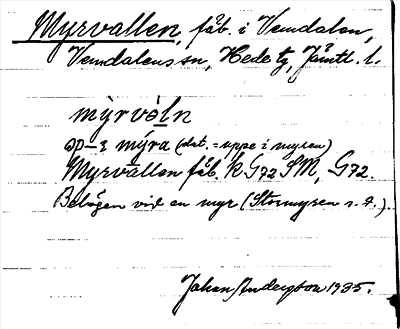 Myrvallen, fåb. i Vemdalen,
Vemdalens sn, Hede tg, Jämtl. l.
mỳrvòln
op-i mýra (dat. = uppe i myren)
Myrvallen fåb. k G72 SM, G72.
Belägen vid en myr (Stormyren n. 4.).
Johan Anderzson 1935.